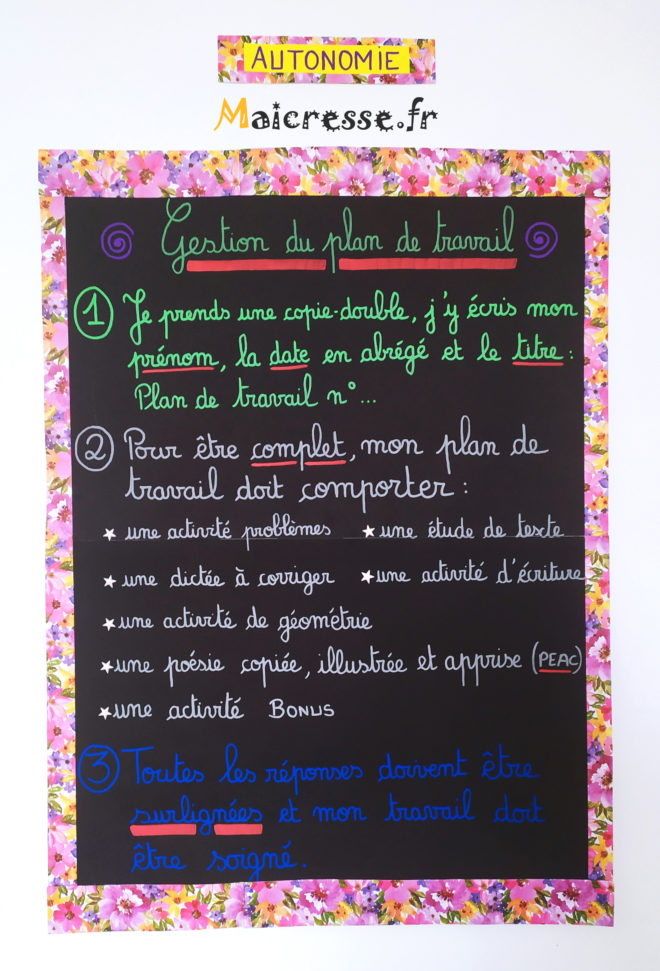 AUTONOMIE
Maicresse.fr
Gestion du plan de travail
1 Je prends une copie-double, j'y écris mon
prénom, la date en abrégé et le titre :
Plan de travail n°...
2 Pour être complet, mon plan de
travail doit comporter :
★ une activité problèmes ★ une étude de texte
★ une dictée à corriger ★ une activité d'écriture
★ une activité de géométrie
★ une poésie copiée, illustrée et apprise (PEAC)
★ une activité BONUS
3 Toutes les réponses doivent être
surlignées et mon travail doit
être soigné.